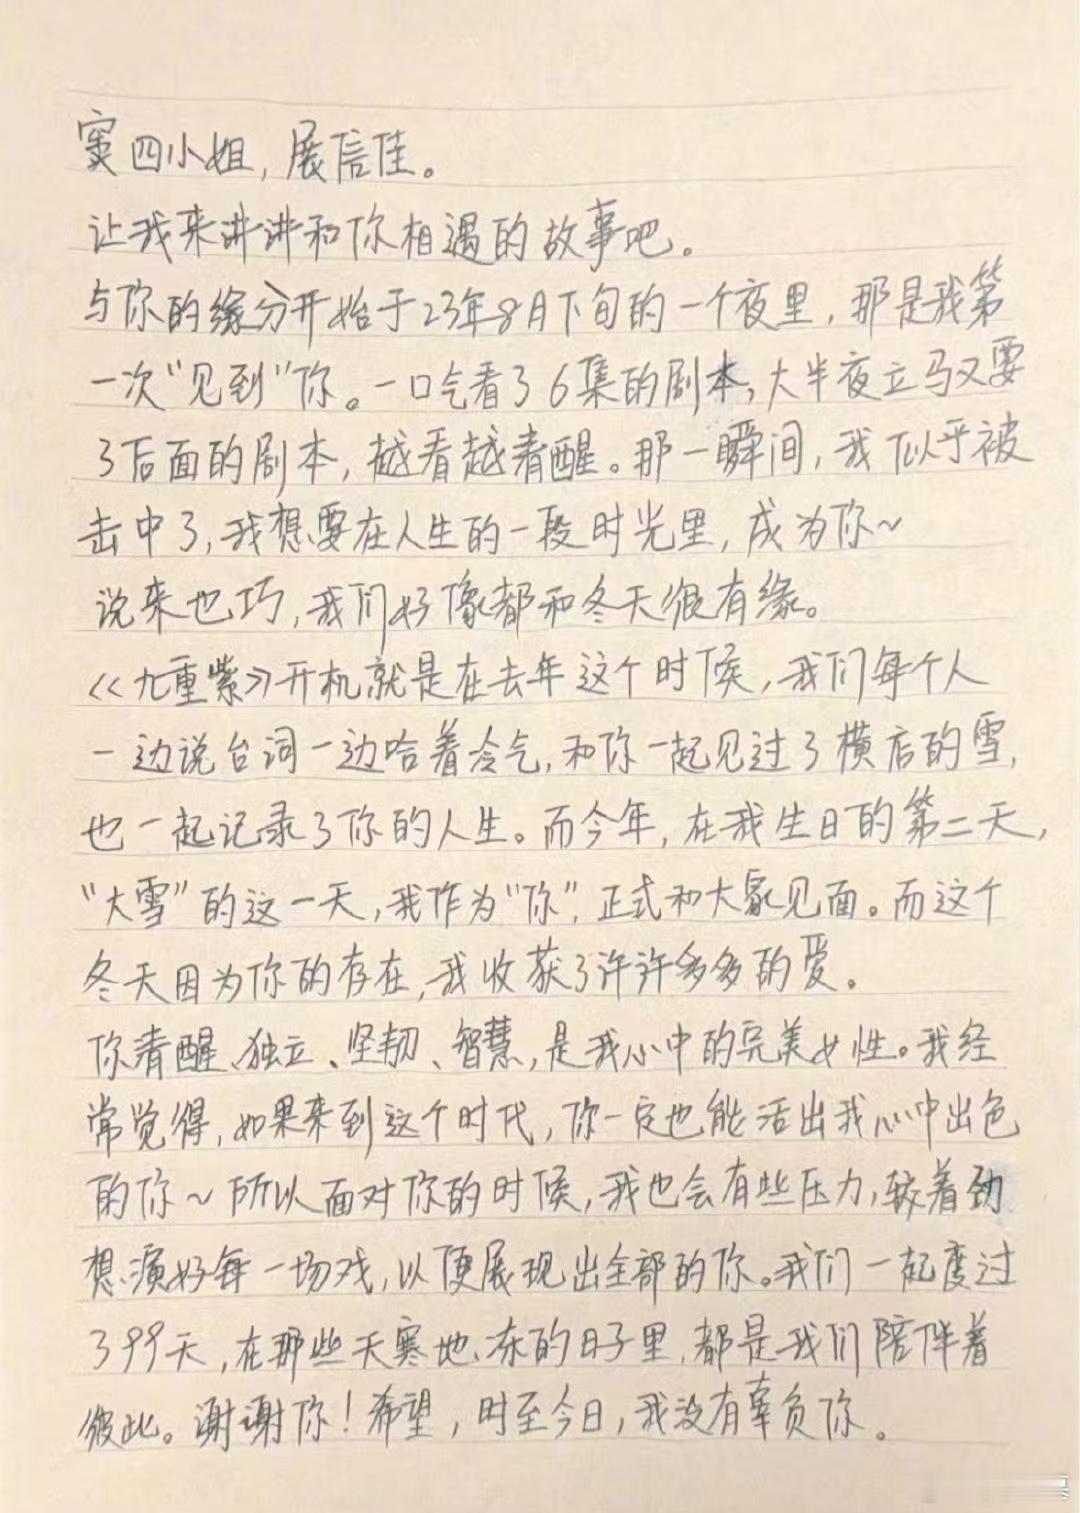 窦四小姐,展信佳。
让我来讲讲和你相遇的故事吧。
与你的缘分开始于23年8月下旬的一个夜里,那是我第
一次“见到”你。一口气看了6集的剧本,大半夜立马又要
了后面的剧本,越看越清醒。那一瞬间,我似乎被
击中了,我想要在人生的一段时光里,成为你~
说来也巧,我们好像都和冬天很有缘。
《九重紫》开机就是在去年这个时候,我们每个人
一边说台词一边哈着冷气,和你一起见过了横店的雪,
也一起记录了你的人生。而今年,在我生日的第二天,
“大雪”的这一天,我作为“你”,正式和大家见面。而这个
冬天因为你的存在,我收获了许许多多的爱。
你清醒、独立、坚韧、智慧,是我心中的完美女性。我经
常觉得,如果来到这个时代,你一定也能活出我心中出色
的你~所以面对你的时候,我也会有些压力,较着劲
想演好每一场戏,以便展现出全部的你。我们一起度过
了99天,在那些天寒地冻的日子里,都是我们陪伴着
彼此。谢谢你!希望,时至今日,我没有辜负你。